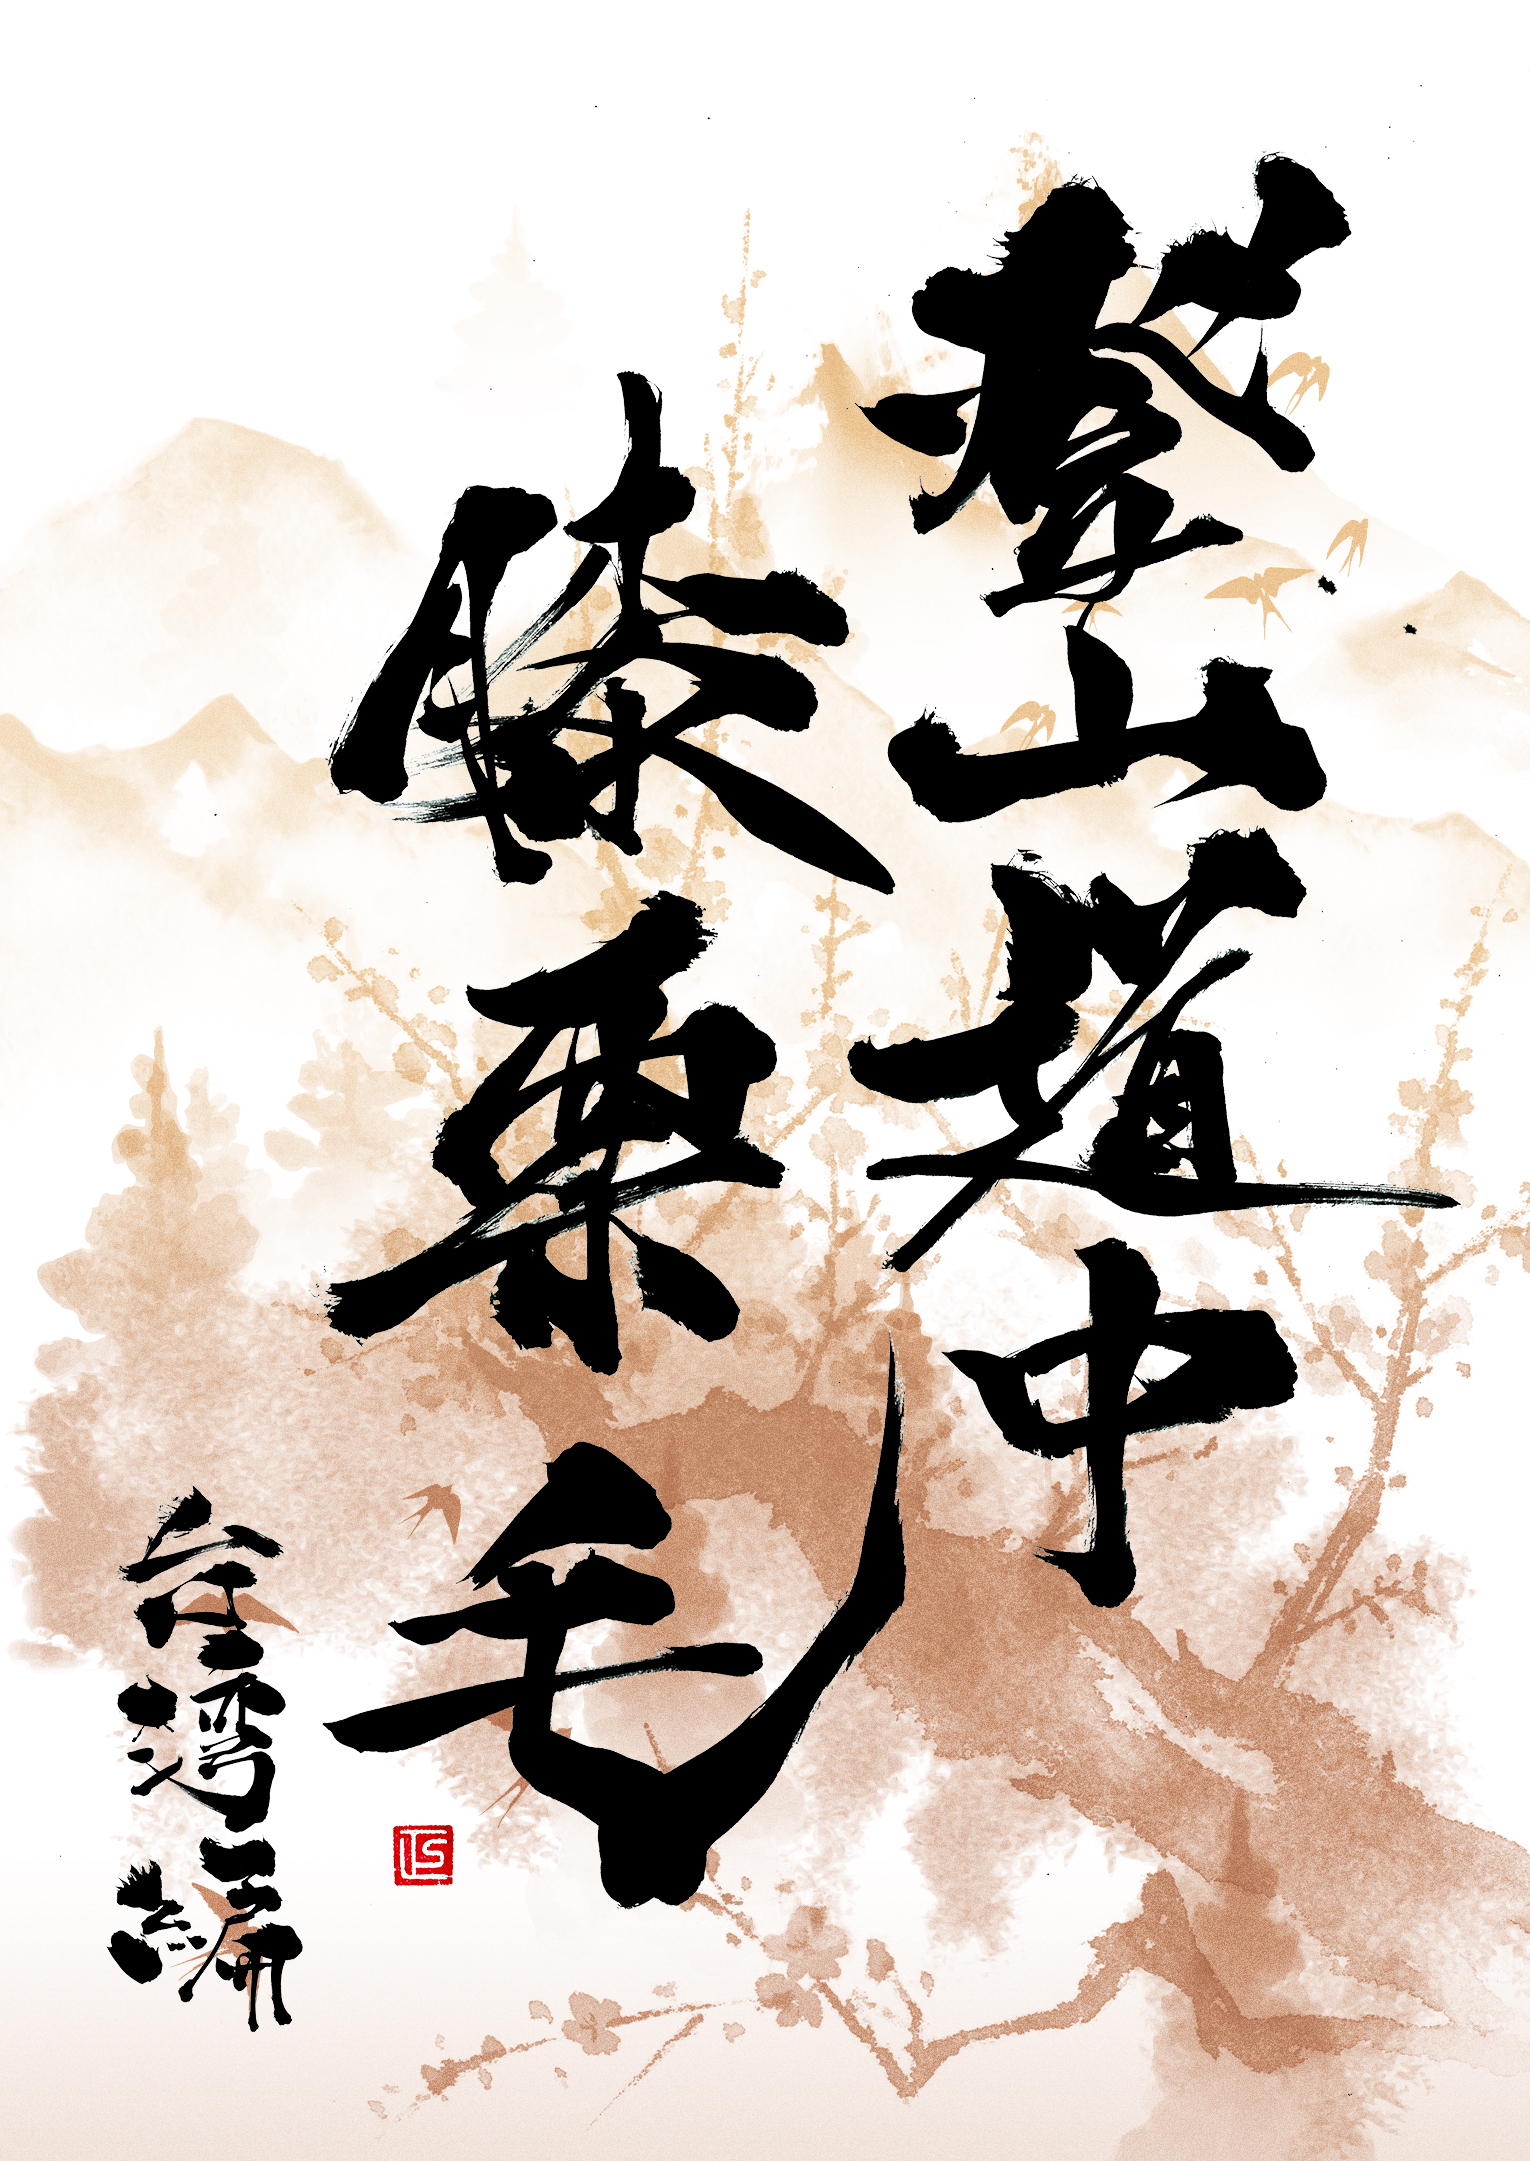 登山道中
膝栗毛
台湾編
LS